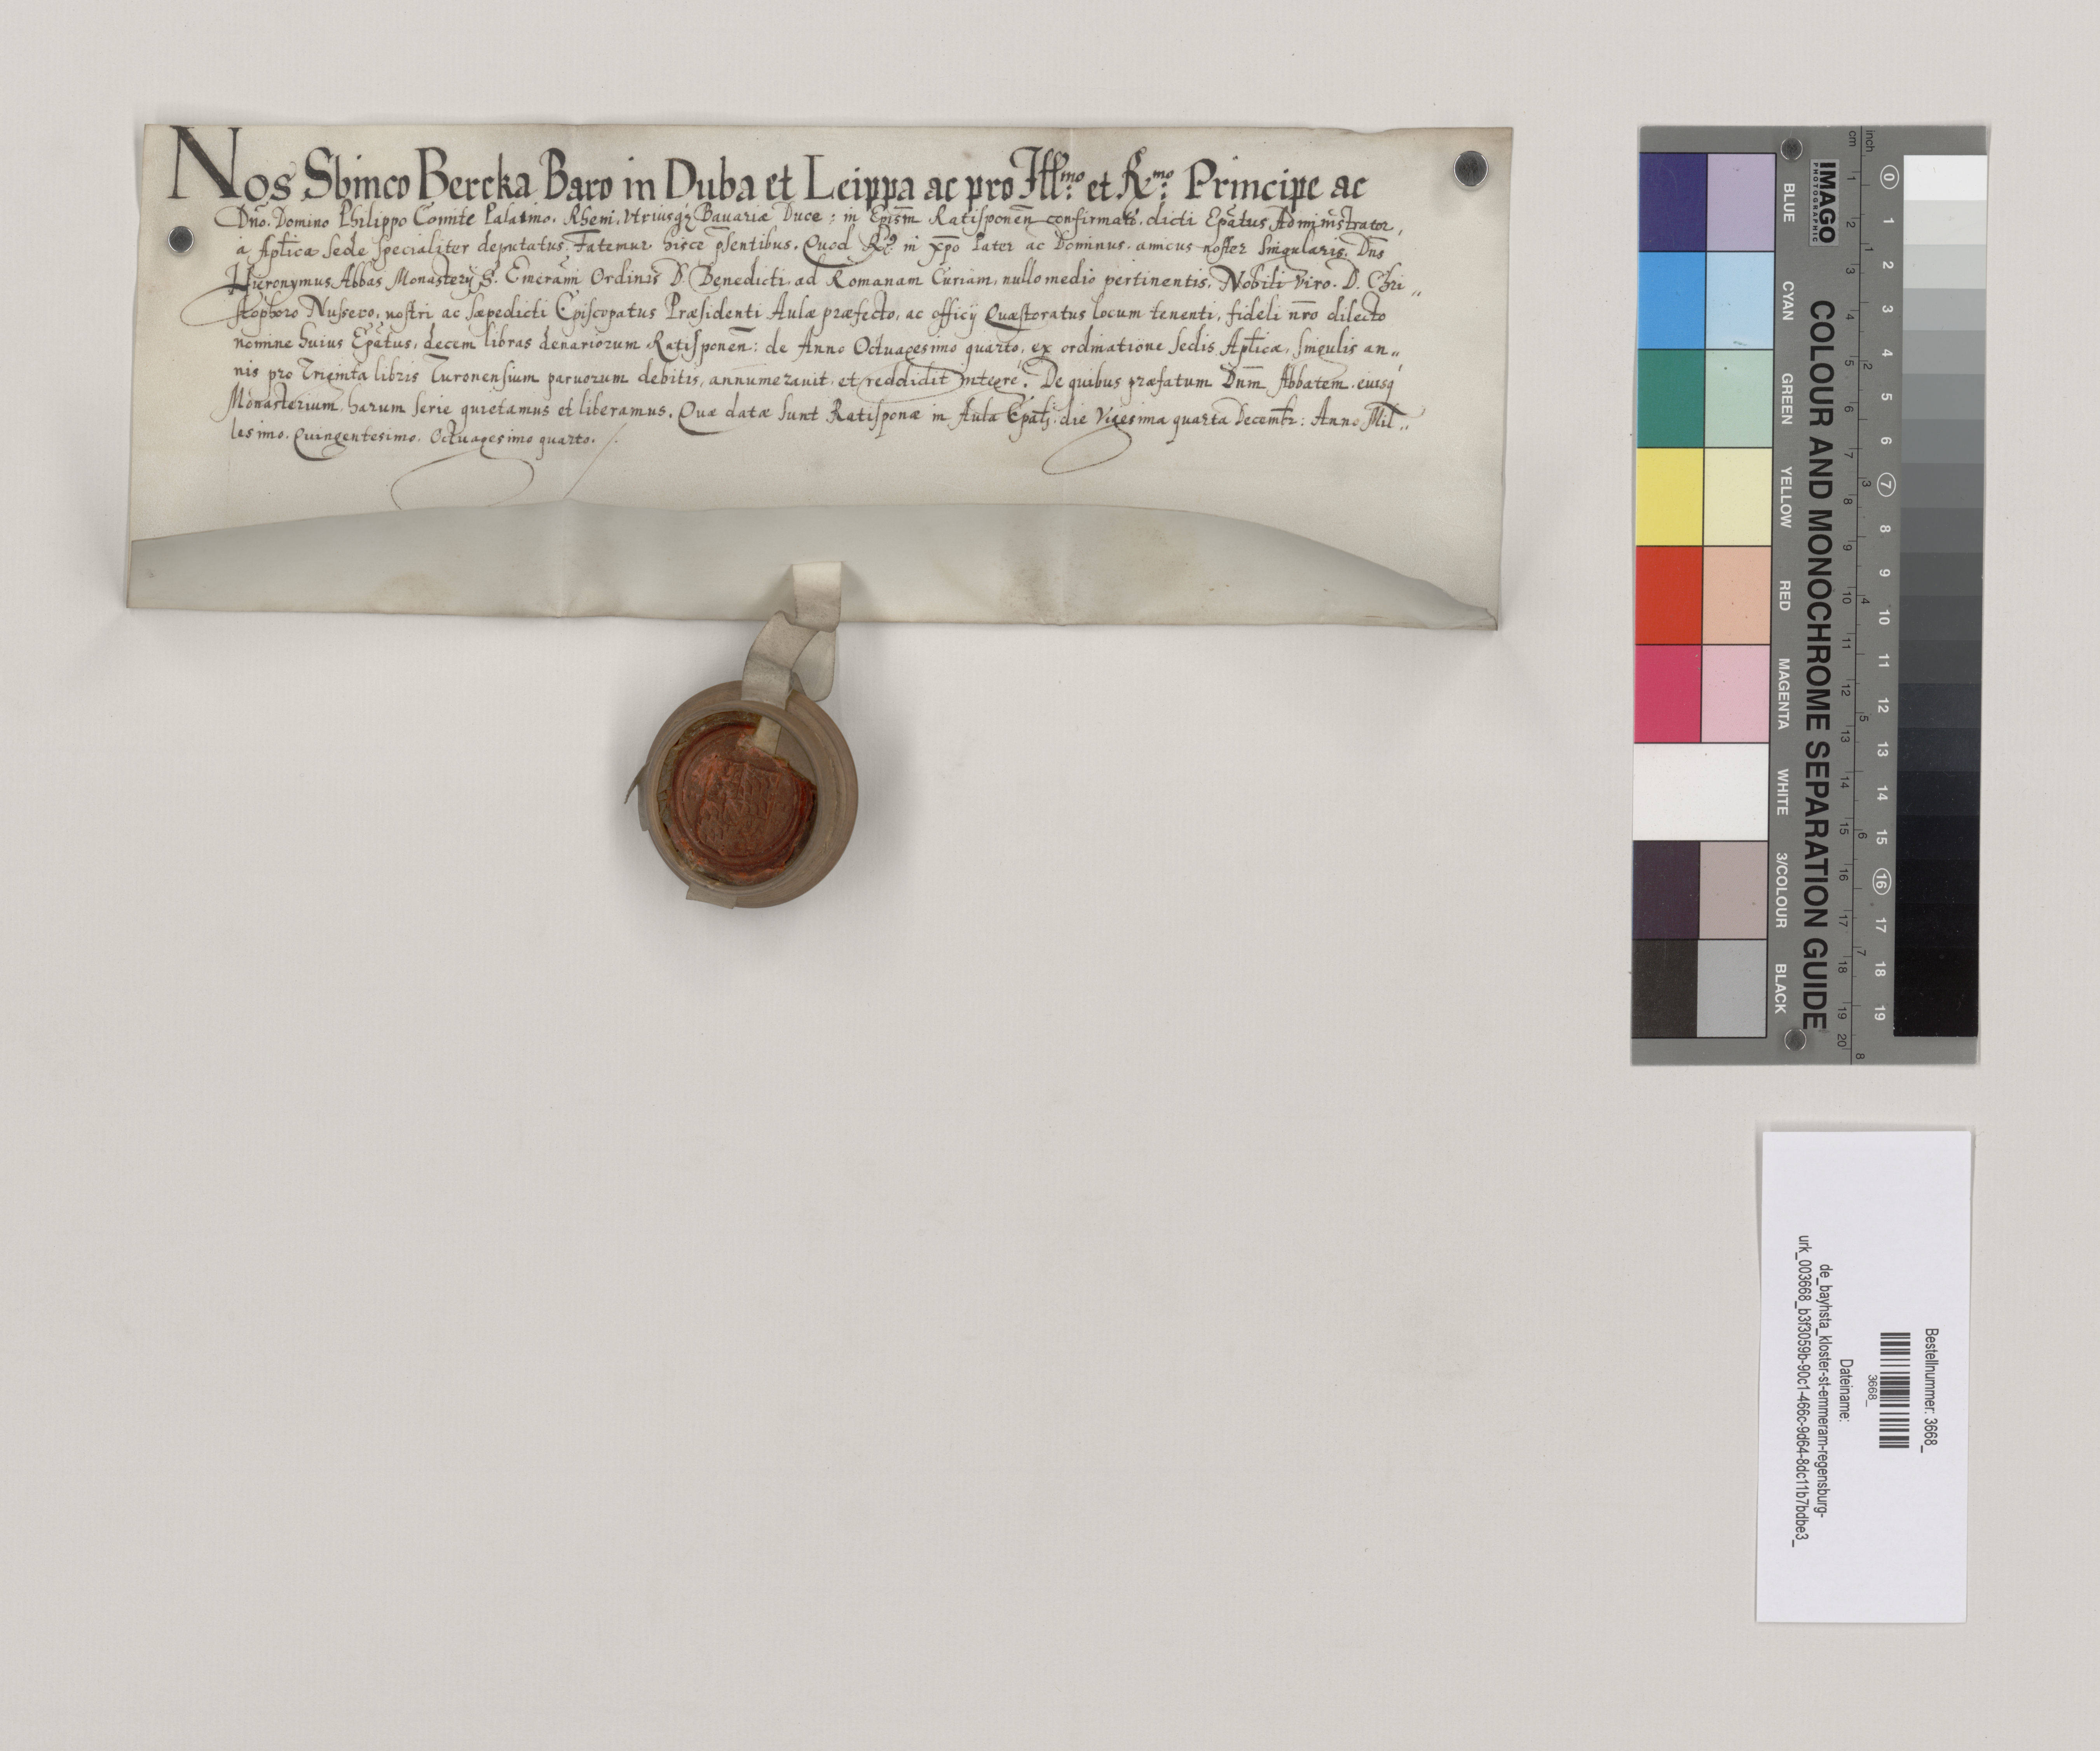 Nos Sbinco Bercka Baro in Duba et Leippa ac pro Illmo: et Rmo: Principe ac
Dno. Domino Philippo Comite Palatino. Rheni. Vtriusq3 Bauariæ Duce: in Epism Ratisponen confirmato. dicti Epatus Administrator,
a Aplica Sede specialiter deputatus. Fatemur hisce psentibus. Quod in xpo Pater ac Dominus. amicus noster singularis. Dns
Hieronymus Abbas Monasterij S. Emerami Ordinis D. Benedicti. ad Romanam Curiam. nullo medio pertinentis. Nobili Viro. D. Chri„
stophoro Nussero, nostri ac sæpedicti Episcopatus Præsidenti Aulæ præfecto, ac officij Quæstoratus locum tenenti, fideli nro dilecto
nomine huius Epatus, decem libras denariorum Ratisponen: de Anno Octuagesimo quarto, ex ordinatione Sedis Aplicæ, singulis an„
nis pro Triginta libris Turonensium paruorum debitis, annumerauit. et reddidit integre. De quibus præfatum Dnm Abbatem. eiusq
Monasterium. harum serie quietamus et liberamus. Quæ datæ sunt Ratisponæ in Aula Epali. die Vigesima quarta Decembr: Anno Mil„
lesimo. Quingentesimo. Octuagesimo quarto.
IMAGO
PHOTOGRAPHIC
COLOUR AND MONOCHROME SEPARATION GUIDE
BLUE
CYAN
GREEN
YELLOW
RED
MAGENTA
WHITE
3/COLOUR
BLACK
cm 1 2 3 4 5 6 7 8 9 10 11 12 13 14 15 16 17 18 19 20
inch 1 2 3 4 5 6 7 8
0 1 2 3 4 5 6 7 8 9 10 11 12 13 14 15 16 17 18 19
Bestellnummer: 3668_
3668_
Dateiname:
de_bayhsta_kloster-st-emmeram-regensburg-
urk_003668_b3f3059b-90c1-466c-9d64-8dc11b7bdbe3_